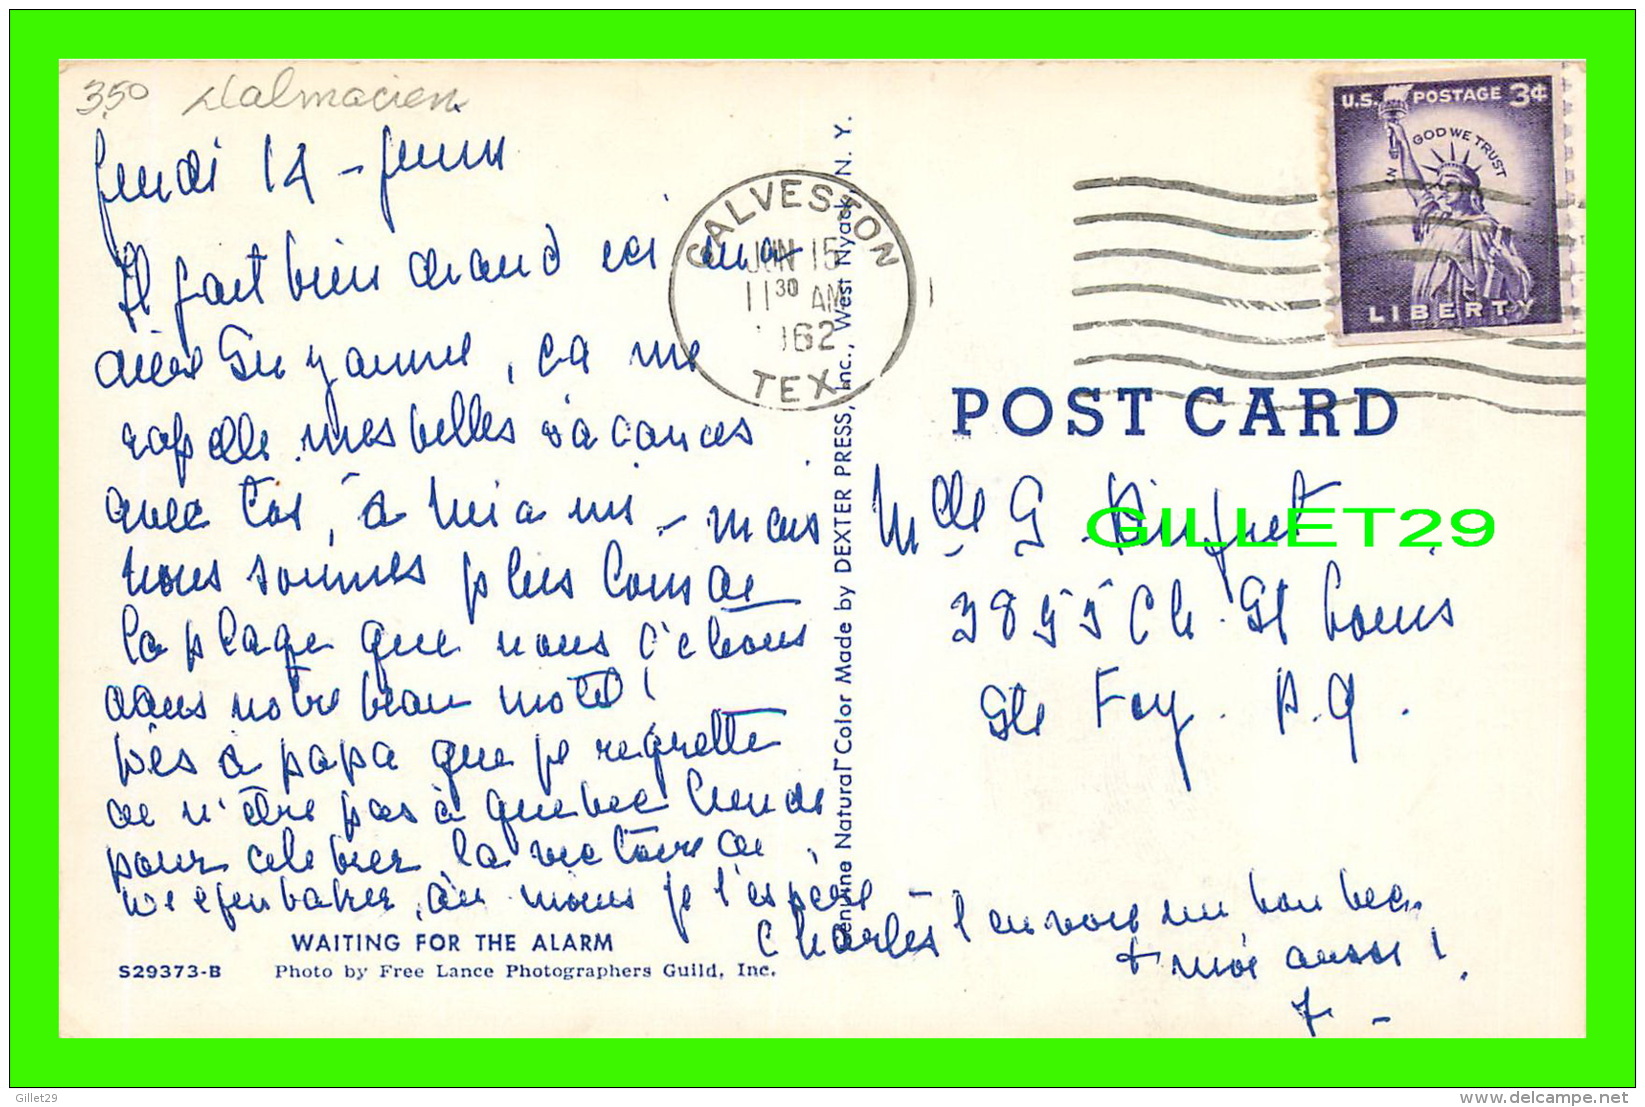 3.50 Dalmacien
Jeudi 14 - Juin
Il fait bien chaud ici ma
chère Suzanne, ça me
rapelle mes belles vacances
avec toi, à Miami - mais
nous sommes plus loins de
la plage que nous l'étions
dans notre beau motel!
Dis à papa que je regrette
de n'être pas à Quebec lundi
pour celebrer la victoire de
Diefenbaker, du moins je l'espère -
Charles t'envoie un bon bec
+ moi aussi!
F -
WAITING FOR THE ALARM
S29373-B Photo by Free Lance Photographers Guild, Inc.
Genuine Natural Color Made by DEXTER PRESS, Inc., West Nyack, N. Y.
GALVESTON
JUN 15
11 30 AM
1962
TEX.
U.S. POSTAGE 3¢
IN GOD WE TRUST
LIBERTY
POST CARD
Mlle G
GILLET29
3855 Ch. St Louis
Ste Foy. P.Q.
Gillet29
www.delcampe.net